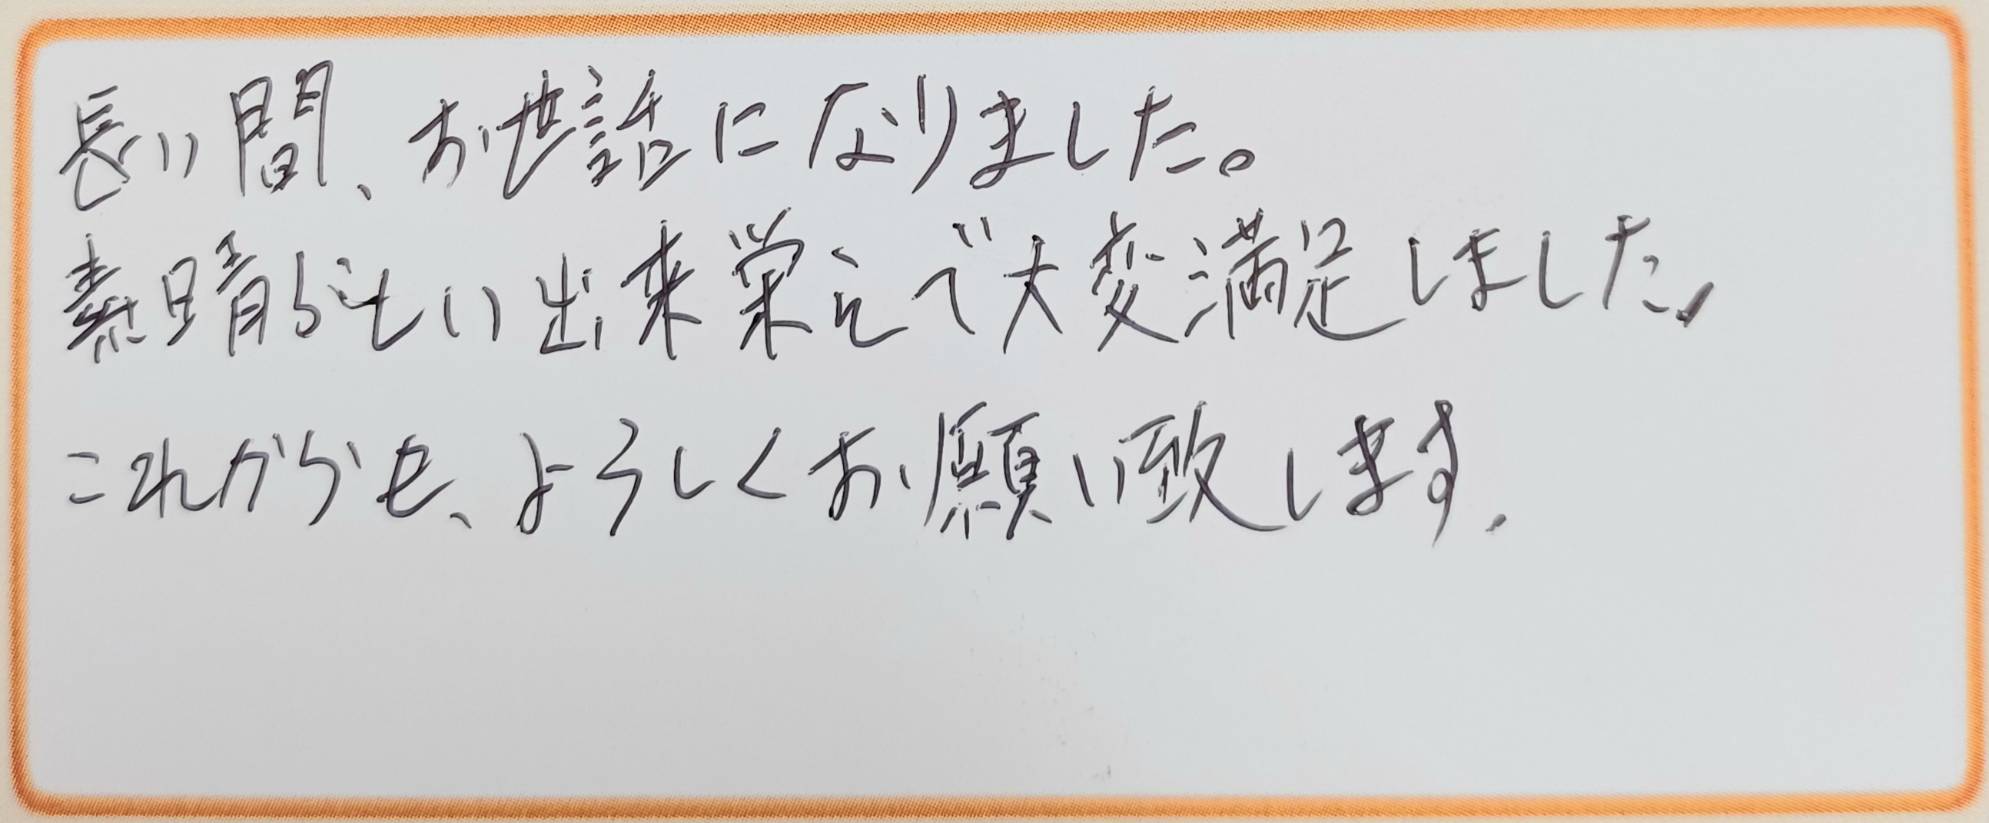 長い間、お世話になりました。
素晴らしい出来栄えで大変満足しました。
これからも、よろしくお願い致します.